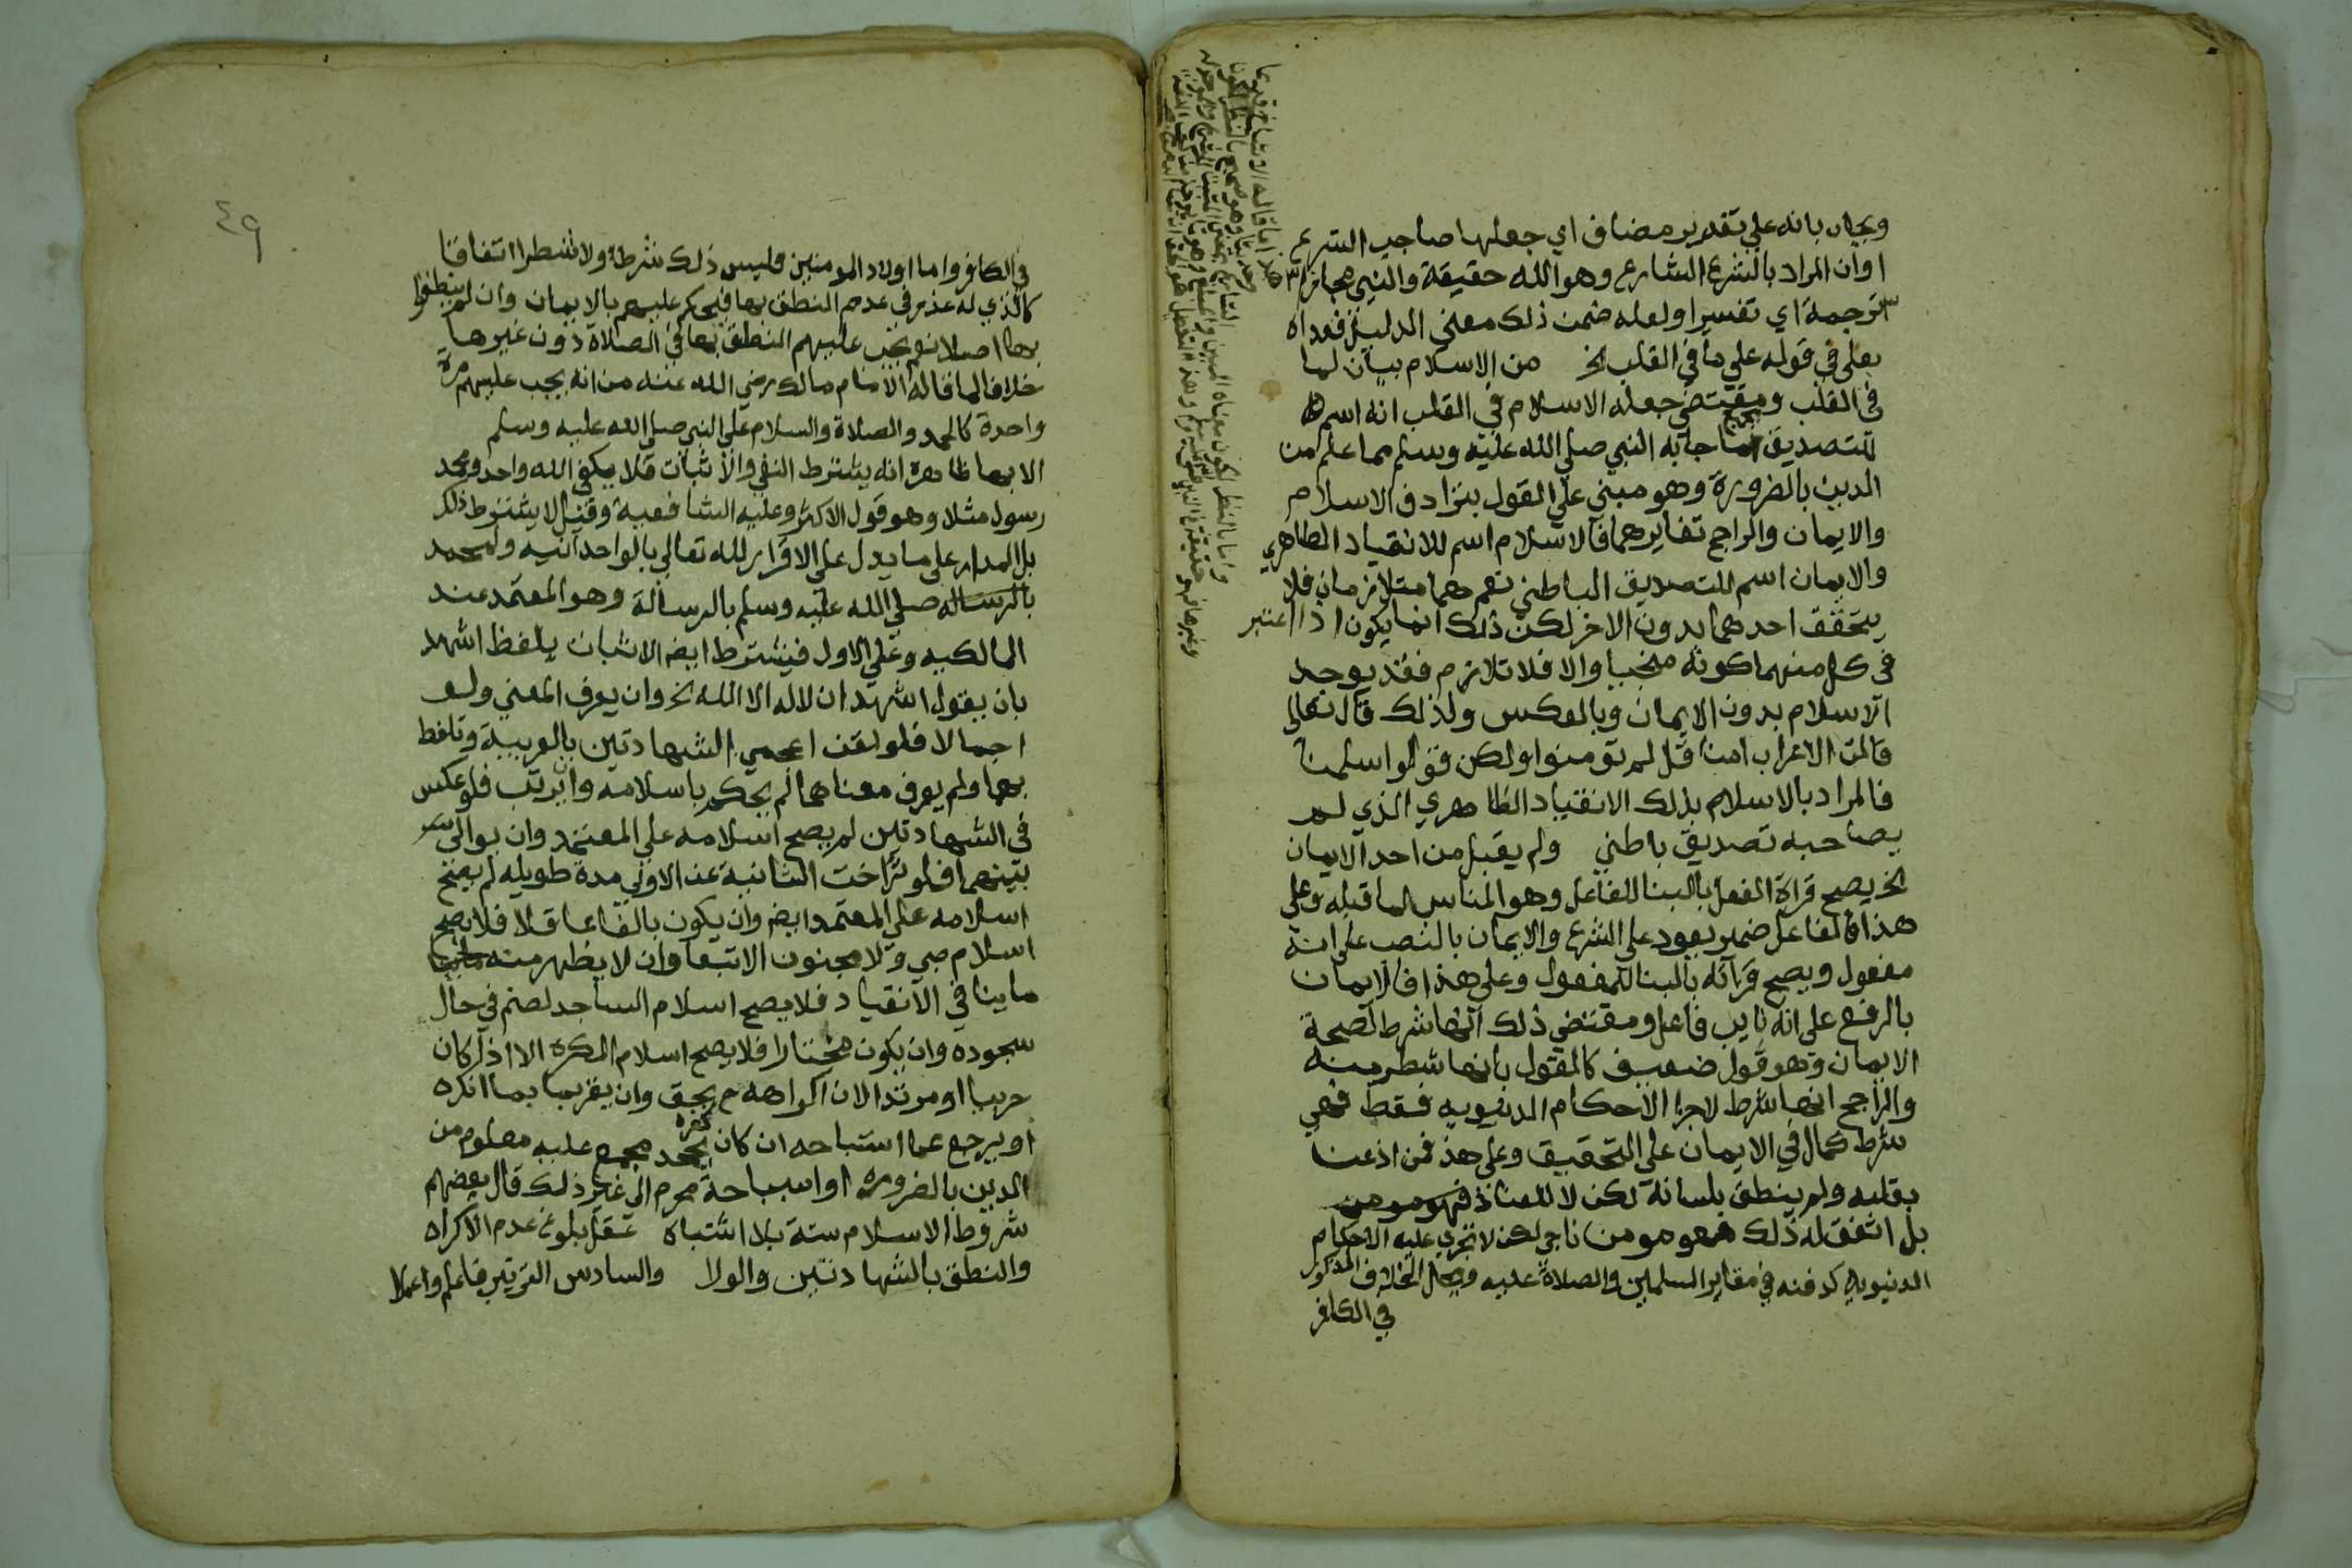 ويجاب بانه علي تقدير مضاف اي جعلها صاحب الشرع
اوان المراد بالشرع الشارع وهو الله حقيقة والنبي مجازا
ترجمة اي تفسيرا ولعله ضمن ذلك معني الدليل فعداه
بعلي في قوله علي ما في القلب الخ من الاسلام بيان لما
في القلب ومقتضي جعله الاسلام في القلب انه اسم
للتصديق بما جا به النبي صلي الله عليه وسلم مما علم من
الدين بالضرورة وهو مبني علي القول بترادف الاسلام
والايمان والراجح تغايرهما فالاسلام اسم للانقياد الظاهري
والايمان اسم للتصديق الباطني نعم هما متلازمان فلا
يتحقق احدهما بدون الاخر لكن ذلك انما يكون اذا اعتبر
في كل منهما كونه منجيا والا فلا تلازم فقد يوجد
الاسلام بدون الايمان وبالعكس ولذلك قال تعالي
قالت الاعراب امنا قل لم تومنوا ولكن قولوا اسلمنا
فالمراد بالاسلام بذلك الانقياد الظاهري الذي لم
يصاحبه تصديق باطني ولم يقبل من احد الايمان
الخ يصح قراة الفعل بالبنا للفاعل وهو المناسب لما قبله وعلي
هذا فالفاعل ضمير يعود علي الشرع والايمان بالنصب علي انه
مفعول ويصح قراته بالبنا للمفعول وعلي هذا فالايمان
بالرفع علي انه نايب فاعل ومقتضي ذلك انها شرط لصحة
الايمان وهو قول ضعيف كالقول بانها شطر منه
والراجح انها شرط لاجرا الاحكام الدنيويه فقط فهي
شرط كمال في الايمان علي التحقيق وعلي هذا فمن اذعن
بقلبه ولم ينطق بلسانه لكن لا للعناد فهو مومن
بل اتفق له ذلك فهو مومن ناجي لكن لا تجري عليه الاحكام
الدنيويه كدفنه في مقابر المسلمين والصلاة عليه ومحل الخلاف المذكور
في الكافر
٤٩
في الكافر واما اولاد المومنين فليس ذلك شرطا ولا شطرا اتفاقا
كالذي له عذر في عدم النطق بها فيحكم عليهم بالايمان وان لم ينطقوا
بها اصلا نعم يجب عليهم النطق بها في الصلاة دون غيرها
خلافا لما قاله الامام مالك رضي الله عنه من انه يجب عليهم مرة
واحدة كالحمد والصلاة والسلام علي النبي صلي الله عليه وسلم
الا بها ظاهره انه يشترط النفي والاثبات فلا يكفي الله واحد ومحمد
رسول مثلا وهو قول الاكثر وعليه الشافعية وقيل لا يشترط ذلك
بل المدار علي ما يدل علي الاقرار لله تعالي بالواحدانيه ولمحمد
بالرساله صلي الله عليه وسلم بالرسالة وهو المعتمد عند
المالكيه وعلي الاول فيشترط ايضا الاتيان بلفظ اشهد
بان يقول اشهد ان لا اله الا الله الخ وان يعرف المعني ولو
اجمالا فلو لقن اعجمي الشهادتين بالعربية وتلفظ
بهما ولم يعرف معناهما لم يحكم باسلامه وان يرتب فلو عكس
في الشهادتين لم يصح اسلامه علي المعتمد وان يوالي
بينهما فلو تراخت الثانية عن الاولي مدة طويله لم يصح
اسلامه علي المعتمد ايضا وان يكون بالغا عاقلا فلا يصح
اسلام صبي ولا مجنون الا تبعا وان لا يظهر منه
ما ينافي الانقياد فلا يصح اسلام الساجد لصنم في حال
سجوده وان يكون مختارا فلا يصح اسلام المكره الا اذا كان
حربيا او مرتدا لان اكراهه ح بحق وان يقر بما انكره
او يرجع عما استباحه ان كان كفره بجحد مجمع عليه معلوم من
الدين بالضروره او استباحة محرم الي غير ذلك قال بعضهم
شروط الاسلام ستة بلا اشتباه عقل بلوغ عدم الاكراه
والنطق بالشهادتين والولا والسادس الترتيب فاعلم واعملا